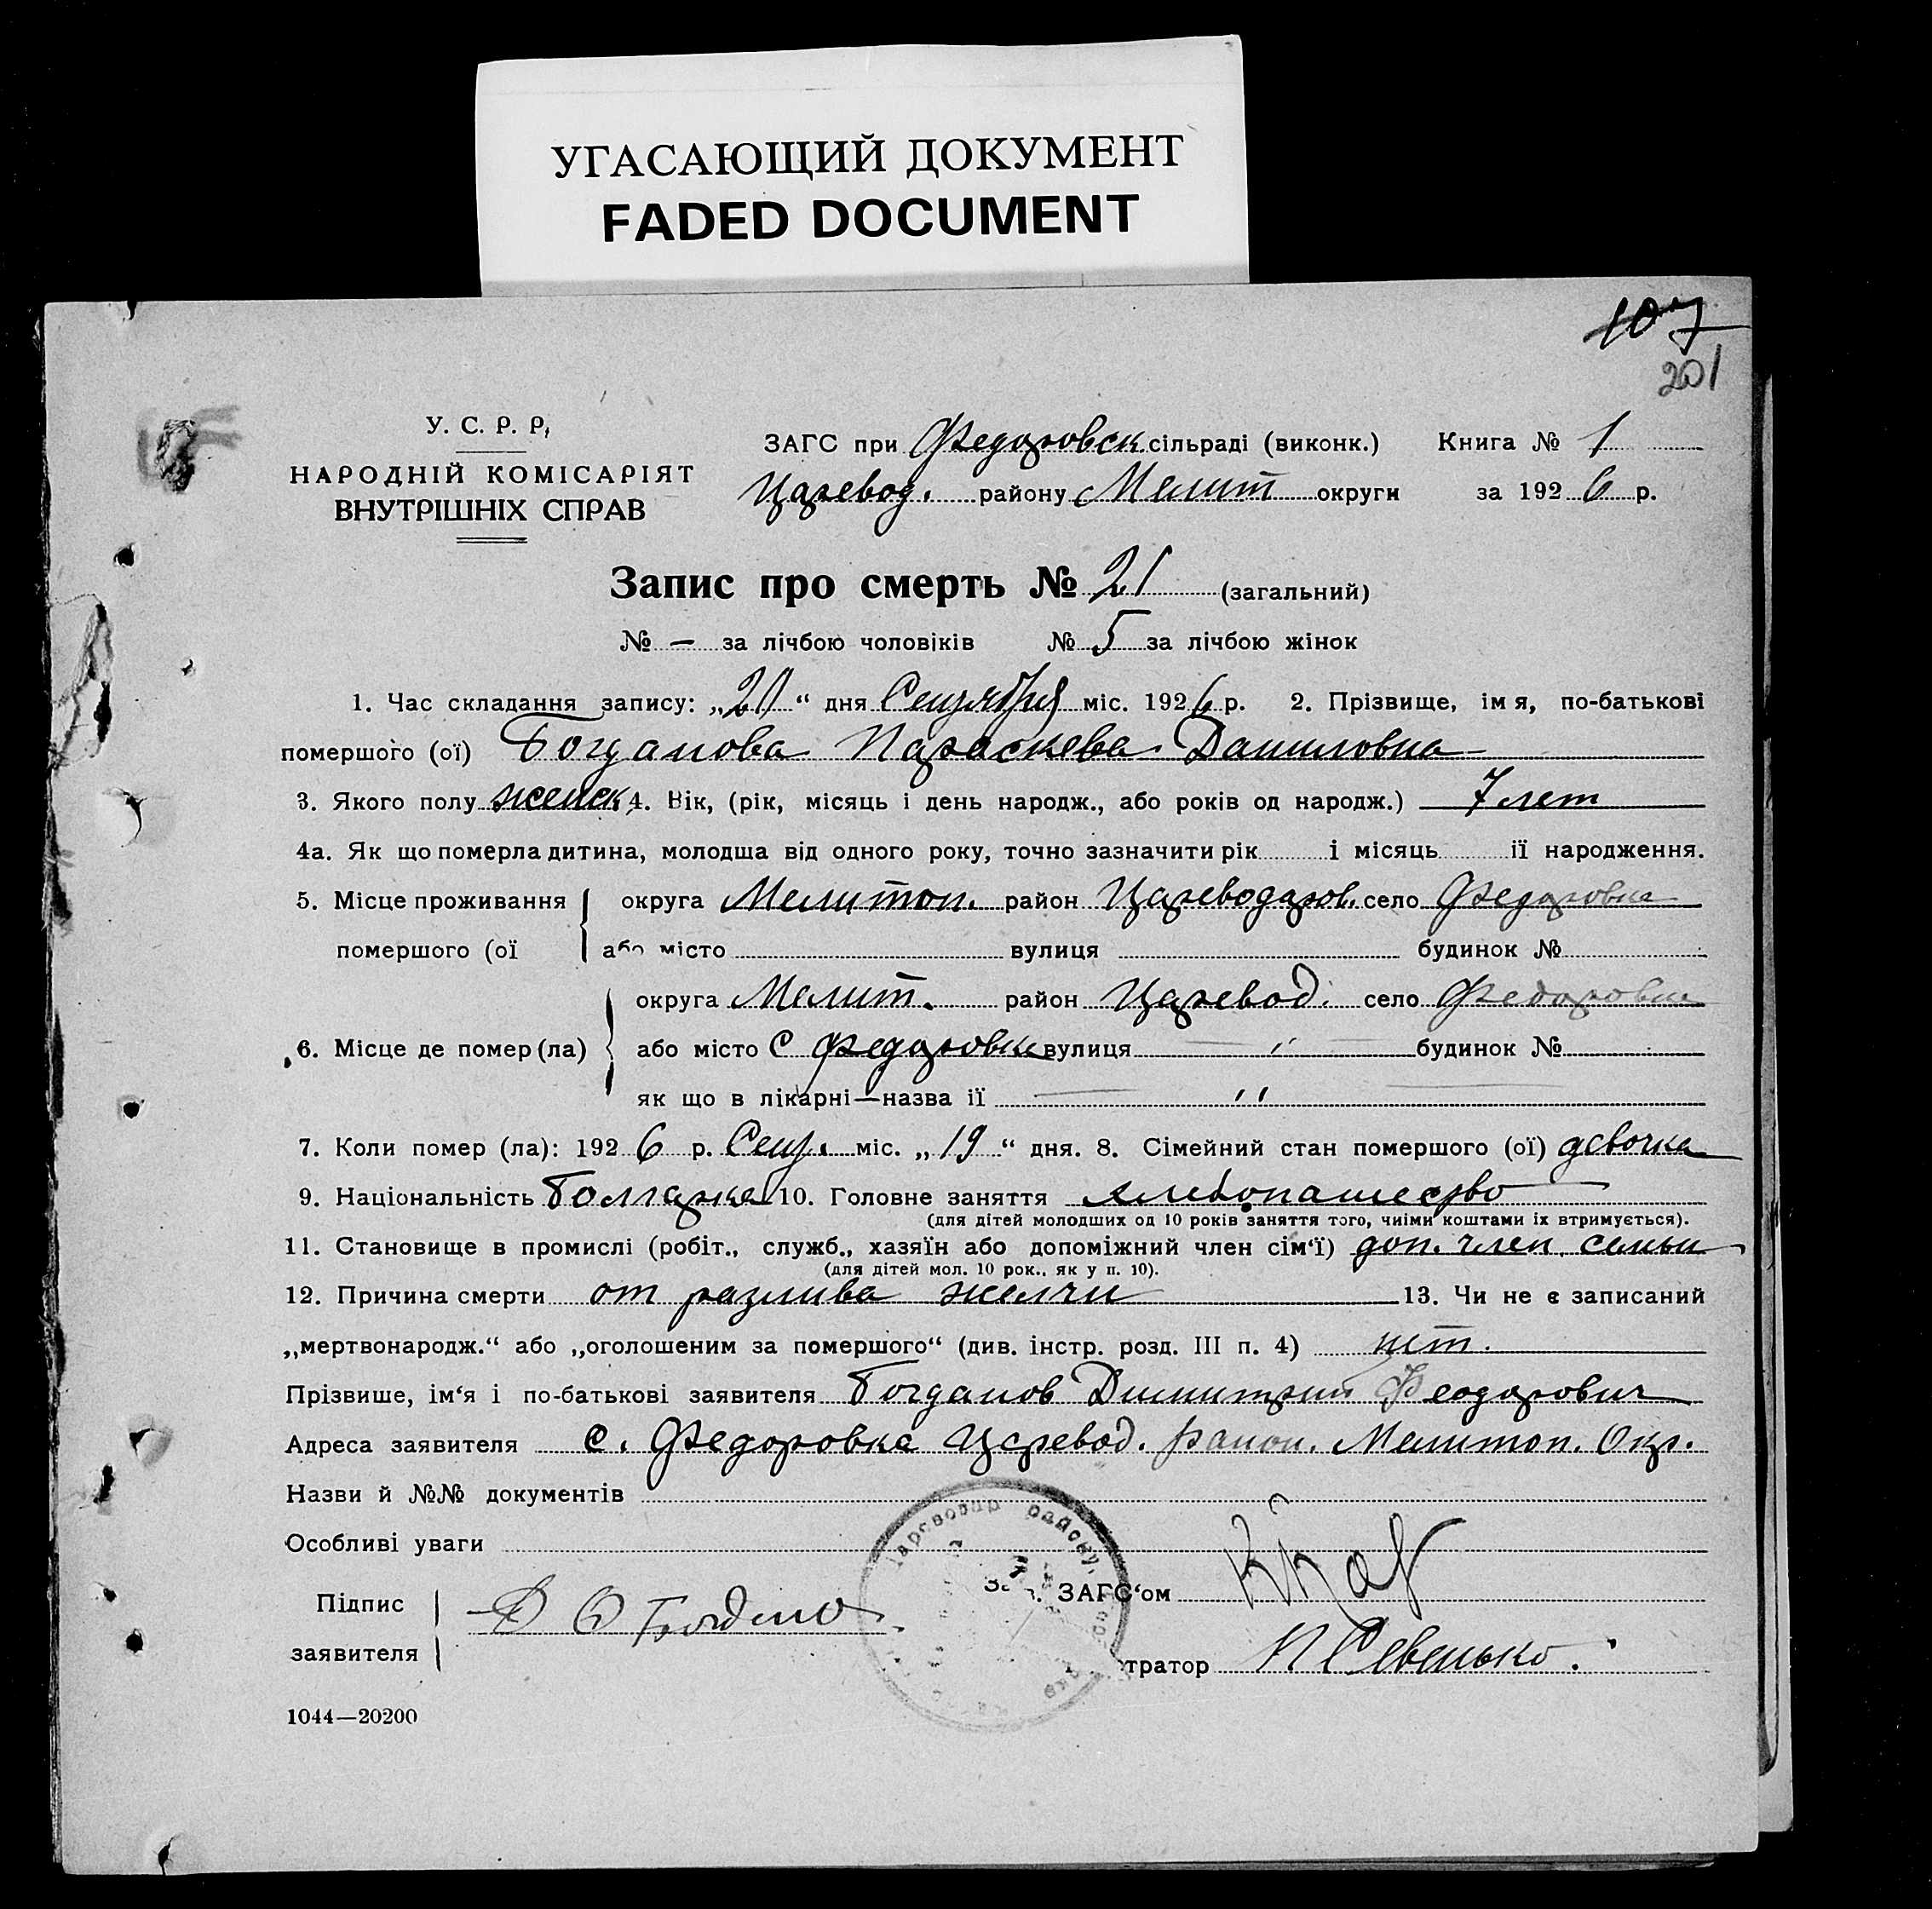 УГАСАЮЩИЙ ДОКУМЕНТ
FADED DOCUMENT
107
201
У. С. Р. Р.
НАРОДНІЙ КОМІСАРІЯТ
ВНУТРІШНІХ СПРАВ
ЗАГС при Федоровск. сільраді (виконк.) Книга № 1
Царевод. району Мелит округи за 1926 р.
Запис про смерть № 21 (загальний)
№ — за лічбою чоловіків № 5 за лічбою жінок
1. Час складання запису: „20“ дня Сентября міс. 1926 р. 2. Прізвище, імя, по-батькові
помершого (ої) Богданова Параскева Даниловна
3. Якого полу женск. 4. Вік, (рік, місяць і день народж., або років од народж.) 7 лет
4а. Як що померла дитина, молодша від одного року, точно зазначити рік і місяць її народження.
5. Місце проживання округа Мелитоп. район Цареводаров. село Федоровка
помершого (ої або місто вулиця будинок №
округа Мелит. район Царевод. село Федоровка
6. Місце де помер (ла) або місто С Федоровка вулиця — " — будинок №
як що в лікарні—назва її — " —
7. Коли помер (ла): 1926 р. Сент. міс. „19“ дня. 8. Сімейний стан помершого (ої) девочка
9. Національність Болгарка 10. Головне заняття хлебопашество
(для дітей молодших од 10 років заняття того, чиїми коштами їх втримується).
11. Становище в промислі (робіт., служб., хазяїн або допоміжний член сім'ї) доп. член семьи
(для дітей мол. 10 рок., як у п. 10).
12. Причина смерти от разлива желчи 13. Чи не є записаний
„мертвонародж.“ або „оголошеним за помершого“ (див. інстр. розд. III п. 4) нет.
Прізвише, ім'я і по-батькові заявителя Богданов Димитрий Феодорович
Адреса заявителя с. Федоровка Царевод. район. Мелитоп. Окр.
Назви й №№ документів
Особливі уваги
Цареводар району
Підпис
заявителя
Д Ф Богданов
ЗАГС'ом
тратор
1044—20200